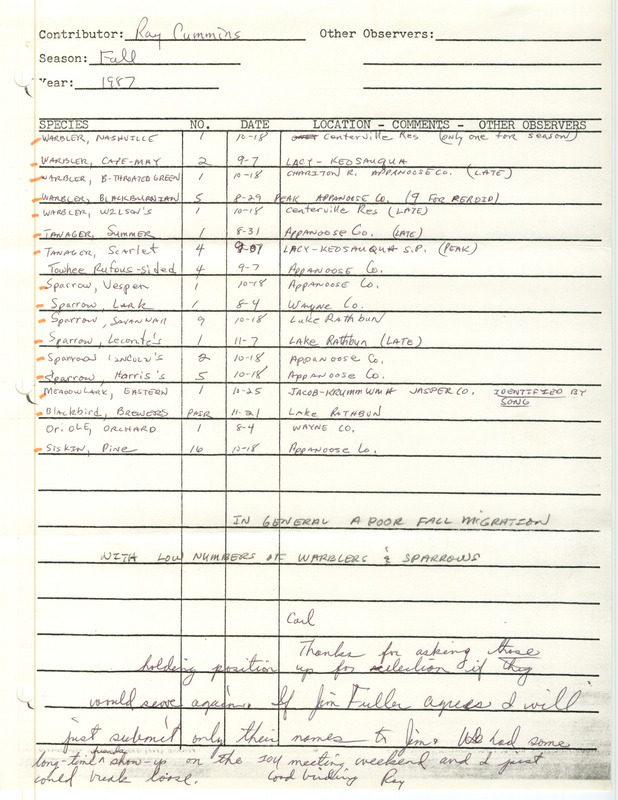 Contributor: Ray Cummins Other Observers:
Season: Fall
Year: 1987
SPECIES NO. DATE LOCATION - COMMENTS - OTHER OBSERVERS
WARBLER, NASHVILLE 1 10-18 Centerville Res (only one for season)
WARBLER, CAPE-MAY 2 9-7 LACY-KEOSAUQUA
WARBLER, B-THROATED GREEN 1 10-18 CHARITON R. APPANOOSE CO. (LATE)
WARBLER, BLACKBURNIAN 5 8-29 PEAK APPANOOSE CO. (9 FOR PERIOD)
WARBLER, WILSON'S 1 10-18 Centerville Res (LATE)
TANAGER, SUMMER 1 8-31 APPANOOSE CO. (LATE)
TANAGER, Scarlet 4 9-07 LACY-KEOSAUQUA S.P. (PEAK)
Towhee Rufous-sided 4 9-7 APPANOOSE CO.
Sparrow, Vesper 1 10-18 APPANOOSE CO.
Sparrow, Lark 1 8-4 WAYNE CO.
Sparrow, SAVANNAH 9 10-18 Lake Rathbun
Sparrow, Leconte's 1 11-7 LAKE RATHBUN (LATE)
Sparrow LINCOLN'S 2 10-18 APPANOOSE CO.
Sparrow, Harris's 5 10-18 APPANOOSE CO.
MEADOWLARK, EASTERN 1 10-25 JACOB-KRUMM WMA JASPER CO. IDENTIFIED BY SONG
Blackbird, BREWERS PAIR 11-21 LAKE RATHBUN
ORIOLE, ORCHARD 1 8-4 WAYNE CO.
SISKIN, Pine 16 10-18 APPANOOSE CO.
IN GENERAL A POOR FALL MIGRATION
WITH LOW NUMBERS OF WARBLERS & SPARROWS
Carl
Thanks for asking those
holding position up for selection if they
would serve again. If Jim Fuller agrees I will
just submit only their names to Jim. We had some
long-time friends show-up on the IOU meeting weekend and I just
could break loose. Good birding Ray